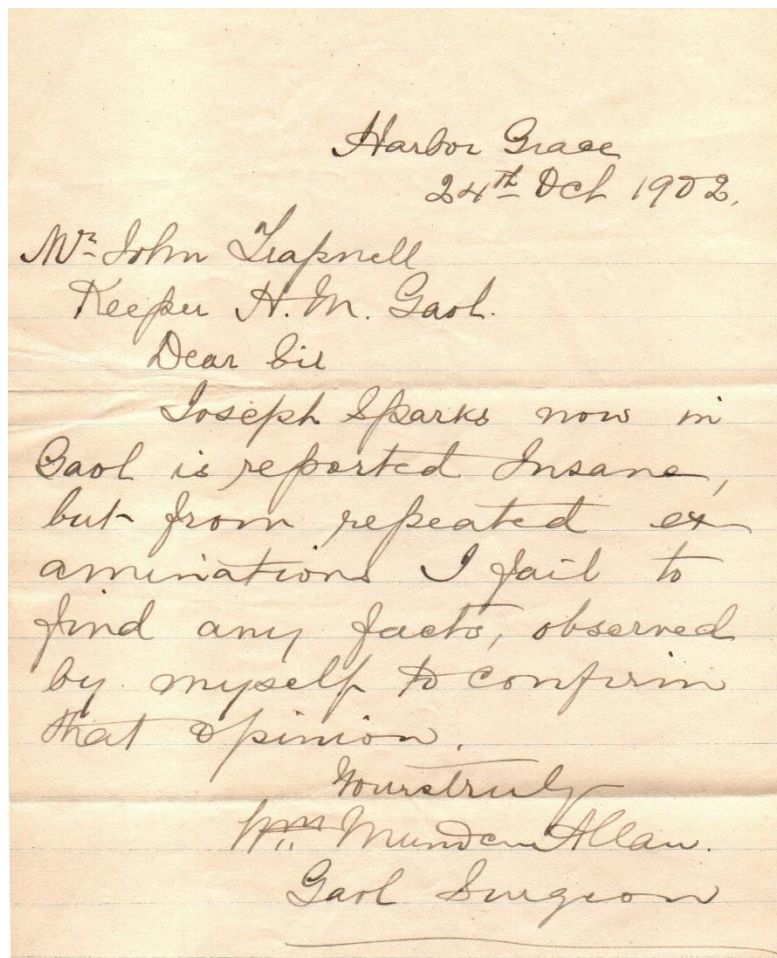 Harbor Grace
24th Oct 1902.
Mr John Trapnell
Keeper H. M. Gaol.
Dear Sir
Joseph Sparks now in
Gaol is reported Insane,
but from repeated ex
aminations I fail to
find any facts, observed
by myself to confirm
that opinion.
Yours truly
Wm Munden Allan.
Gaol Surgeon